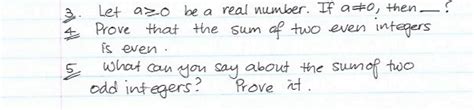 3. Let a≥0 be a real number. If a≠0, then __?
4. Prove that the sum of two even integers
is even.
5. What can you say about the sum of two
odd integers? Prove it.